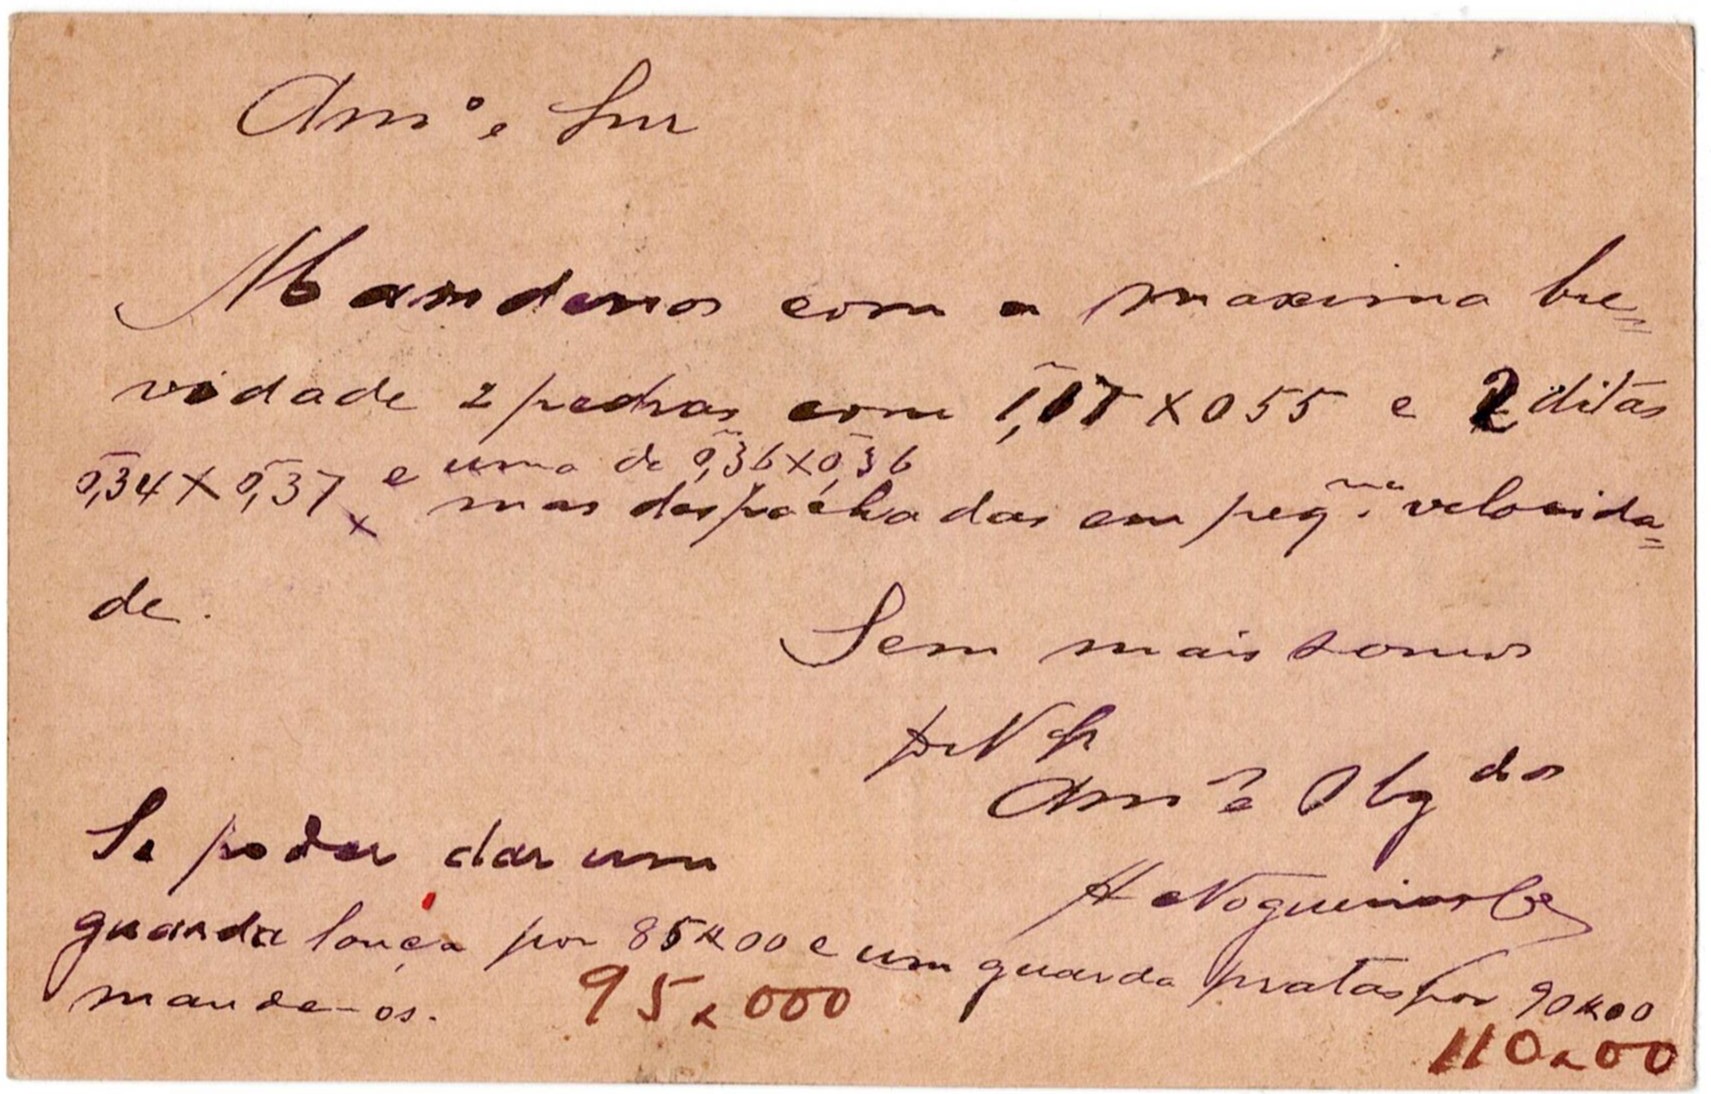 Am.º e Snr
Mandenos com a maxima bre=
vidade 2 pedras com 1,17 X 055 e 2 ditas
0,34 X 0,37 e uma de 0,36 X 0,36
x mas despachadas em peqna. velocida=
de.
Sem mais somos
Amos e Obgdos
A Nogueira & Ca
Se poder dar um
guarda louça por 85$00 e um guarda pratas por 90$00
mande-os. 95$000
110$00